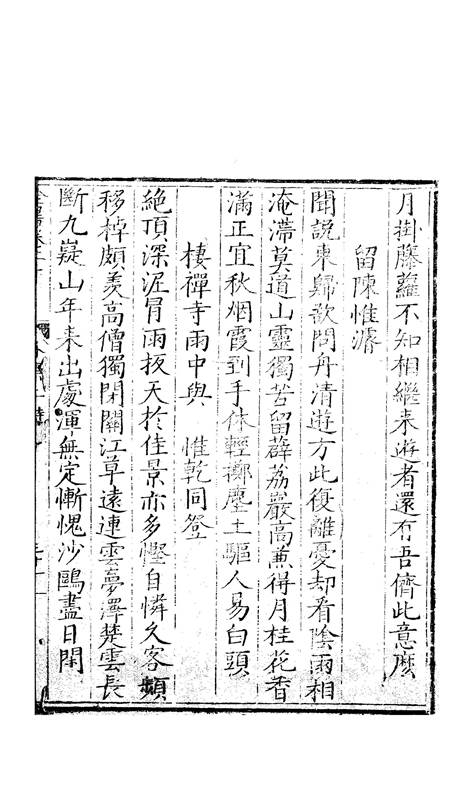 月掛藤蘿不知相繼來遊者還有吾儕此意麽
留陳惟濬
聞說東歸欲問舟清遊方此復離憂却看陰雨相
淹滯莫道山靈獨苦留薜荔巖高兼得月桂花香
滿正宜秋烟霞到手休輕擲塵土驅人易白頭
棲禪寺雨中與 惟乾同登
絶頂深泥冒雨扳天於佳景亦多慳自憐久客頻
移棹頗羨高僧獨閉關江草遠連雲夢澤楚雲長
斷九嶷山年來出處渾無定慚愧沙鷗盡日閒